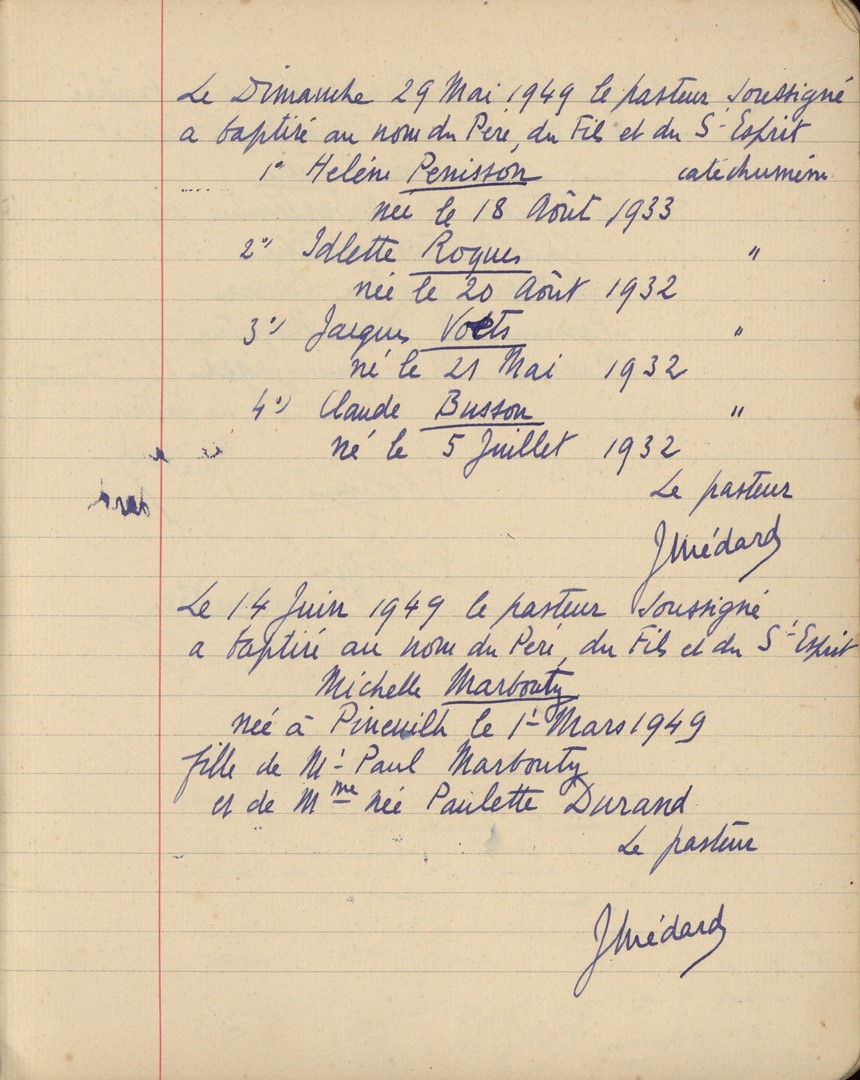 Le Dimanche 29 Mai 1949 le pasteur soussigné
a baptisé au nom du Père, du Fils et du St Esprit
1° Helène Penisson catéchumène
née le 18 Août 1933
2°) Idlette Roques "
née le 20 Août 1932
3°) Jacques Volts "
né le 21 Mai 1932
4°) Claude Busson "
né le 5 Juillet 1932
Le pasteur
JMédard
Le 14 Juin 1949 le pasteur soussigné
a baptisé au nom du Père, du Fils et du St Esprit
Michelle Marbouty
née à Pineuilh le 1r Mars 1949
fille de Mr Paul Marbouty
et de Mme née Paulette Durand
Le pasteur
JMédard